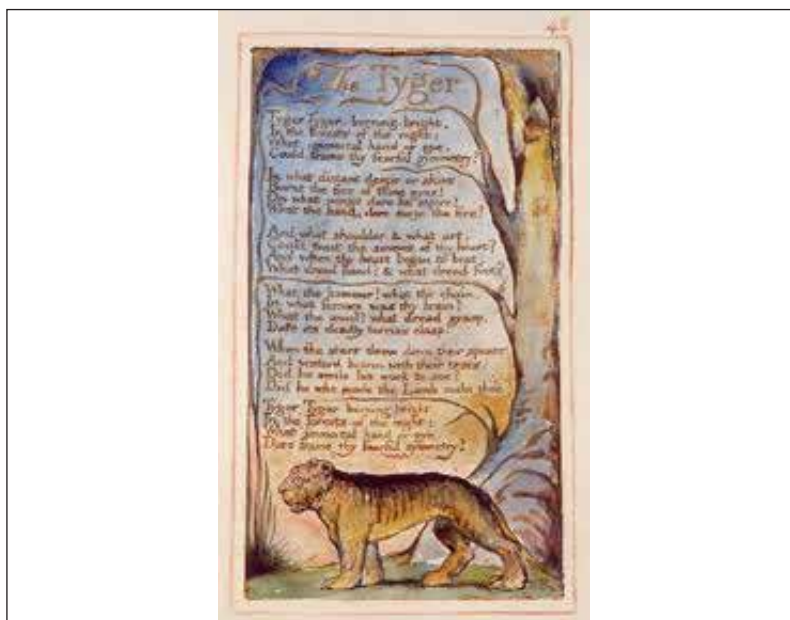 48
The Tyger
Tyger Tyger, burning bright,
In the forests of the night;
What immortal hand or eye,
Could frame thy fearful symmetry?
In what distant deeps or skies
Burnt the fire of thine eyes?
On what wings dare he aspire?
What the hand, dare sieze the fire?
And what shoulder, & what art,
Could twist the sinews of thy heart?
And when thy heart began to beat,
What dread hand? & what dread feet?
What the hammer? what the chain,
In what furnace was thy brain?
What the anvil? what dread grasp,
Dare its deadly terrors clasp!
When the stars threw down their spears
And water'd heaven with their tears:
Did he smile his work to see?
Did he who made the Lamb make thee?
Tyger Tyger burning bright,
In the forests of the night:
What immortal hand or eye,
Dare frame thy fearful symmetry?